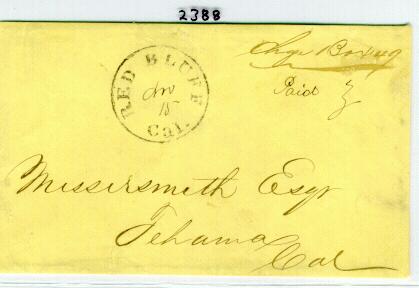 2388
RED BLUFF
15
Cal.
Chge Box 119
Paid 3
Messersmith Esqr
Tehama
Cal